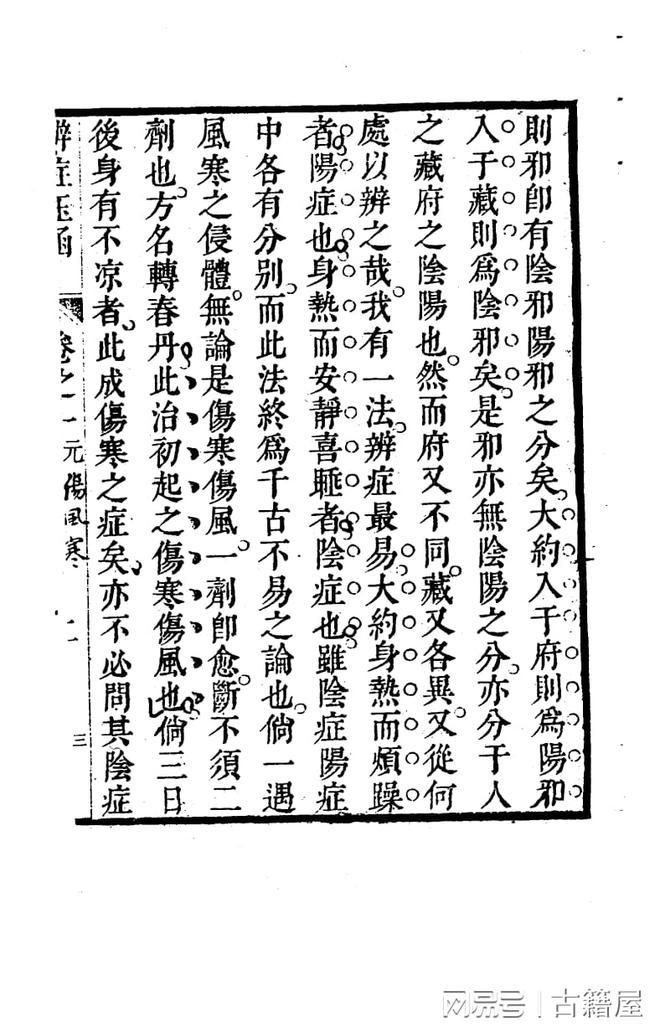 則邪卽有陰邪陽邪之分矣大約入于府則爲陽邪
入于藏則爲陰邪矣是邪亦無陰陽之分亦分于人
之藏府之陰陽也然而府又不同藏又各異又從何
處以辨之哉我有一法辨症最易大約身熱而煩躁
者陽症也身熱而安靜喜睡者陰症也雖陰症陽症
中各有分別而此法終爲千古不易之論也倘一遇
風寒之侵體無論是傷寒傷風一劑卽愈斷不須二
劑也方名轉春丹此治初起之傷寒傷風也倘三日
後身有不凉者此成傷寒之症矣亦不必問其陰症
辨症玉函 卷之一 元 傷風寒 三
网易号 | 古籍屋